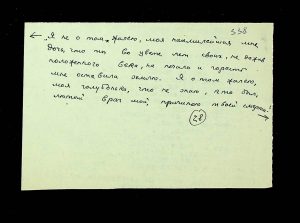 338
← „Я не о том жалею, моя наимилейшая мне
дочь, что ты во цвете лет своих, не дожив
положенного века, на печаль и горесть
мне оставила землю. Я о том жалею,
моя голубонька, что не знаю, кто был,
лютый враг мой, причиною твоей смерти. →
28